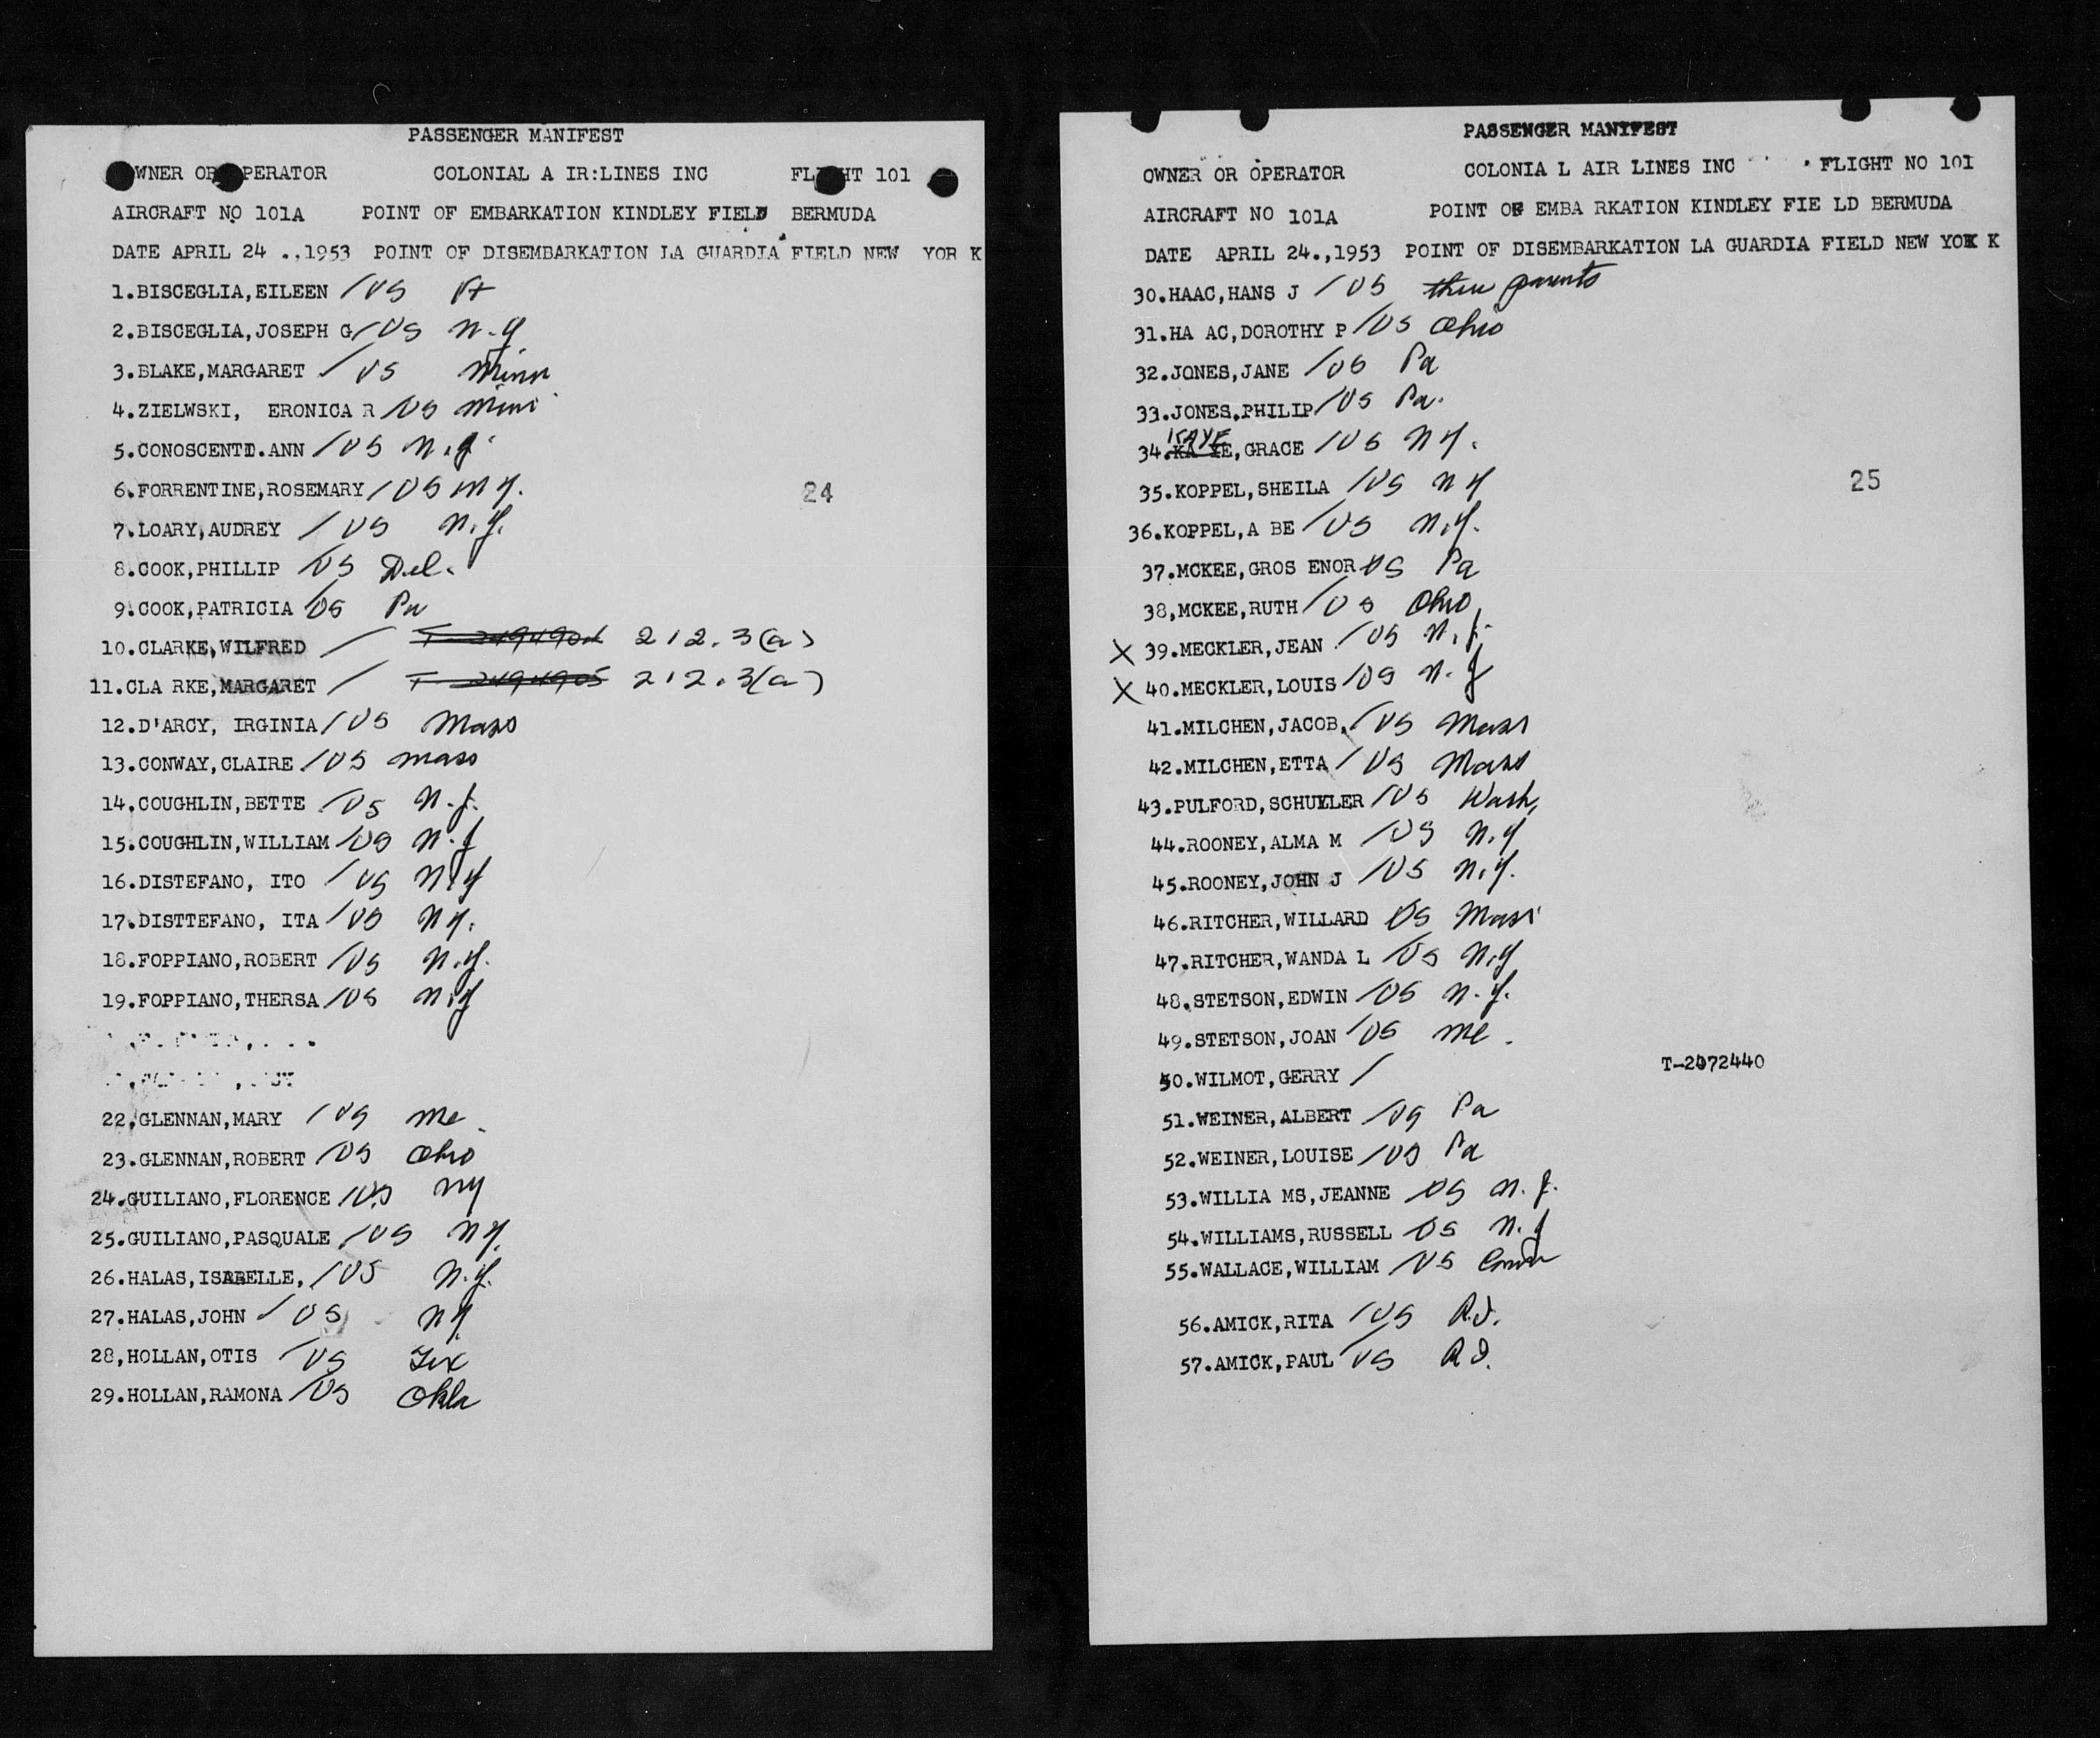 PASSENGER MANIFEST
OWNER OR OPERATOR COLONIAL A IR:LINES INC FLIGHT 101
AIRCRAFT NO 101A POINT OF EMBARKATION KINDLEY FIELD BERMUDA
DATE APRIL 24 .,1953 POINT OF DISEMBARKATION LA GUARDIA FIELD NEW YOR K
1.BISCEGLIA,EILEEN / US
2.BISCEGLIA,JOSEPH G/ US N.Y
3.BLAKE,MARGARET / US Minn
4.ZIELWSKI, ERONICA R / US Minn
5.CONOSCENTI.ANN / US N.Y.
6.FORRENTINE,ROSEMARY / US N Y.
24
7.LOARY,AUDREY / US N.Y.
8.COOK,PHILLIP / US Del.
9.COOK,PATRICIA / US Pa
10.CLARKE,WILFRED / 212.3(a)
11.CLA RKE,MARGARET / T-2494905 212.3(a)
12.D'ARCY, IRGINIA / US Mass
13.CONWAY,CLAIRE / US Mass
14.COUGHLIN,BETTE / US N.J.
15.COUGHLIN,WILLIAM / US N.J
16.DISTEFANO, ITO / US N.Y
17.DISTTEFANO, ITA / US N Y.
18.FOPPIANO,ROBERT / US N.Y.
19.FOPPIANO,THERSA / US N.Y
22,GLENNAN,MARY / US Me.
23.GLENNAN,ROBERT / US Ohio
24.GUILIANO,FLORENCE / US NY
25.GUILIANO,PASQUALE / US N Y.
26.HALAS,ISABELLE, / US N.Y.
27.HALAS,JOHN / US N Y.
28,HOLLAN,OTIS / US Tex
29.HOLLAN,RAMONA / US Okla
PASSENGER MANIFEST
OWNER OR OPERATOR COLONIA L AIR LINES INC FLIGHT NO 101
AIRCRAFT NO 101A POINT OF EMBA RKATION KINDLEY FIE LD BERMUDA
DATE APRIL 24.,1953 POINT OF DISEMBARKATION LA GUARDIA FIELD NEW YOR K
30.HAAC,HANS J / US thru parents
31.HA AC,DOROTHY P / US Ohio
32.JONES,JANE / US Pa
33.JONES,PHILIP / US Pa.
KAYE
34.KA YE,GRACE / US N Y.
35.KOPPEL,SHEILA / US N Y
25
36.KOPPEL,A BE / US N.Y.
37.MCKEE,GROS ENOR / US Pa
38,MCKEE,RUTH / US Ohio
X 39.MECKLER,JEAN / US N.J.
X 40.MECKLER,LOUIS / US N.J
41.MILCHEN,JACOB, / US Mass
42.MILCHEN,ETTA / US Mass
43.PULFORD,SCHUYLER / US Wash,
44.ROONEY,ALMA M / US N.Y
45.ROONEY,JOHN J / US N.Y.
46.RITCHER,WILLARD / US Mass
47.RITCHER,WANDA L / US N.Y
48.STETSON,EDWIN / US N.Y.
49.STETSON,JOAN / US Me.
50.WILMOT,GERRY / T-2472440
51.WEINER,ALBERT / US Pa
52.WEINER,LOUISE / US Pa
53.WILLIA MS,JEANNE / US N.J.
54.WILLIAMS,RUSSELL / US N.J
55.WALLACE,WILLIAM / US Conn
56.AMICK,RITA / US R.I.
57.AMICK,PAUL / US R I.